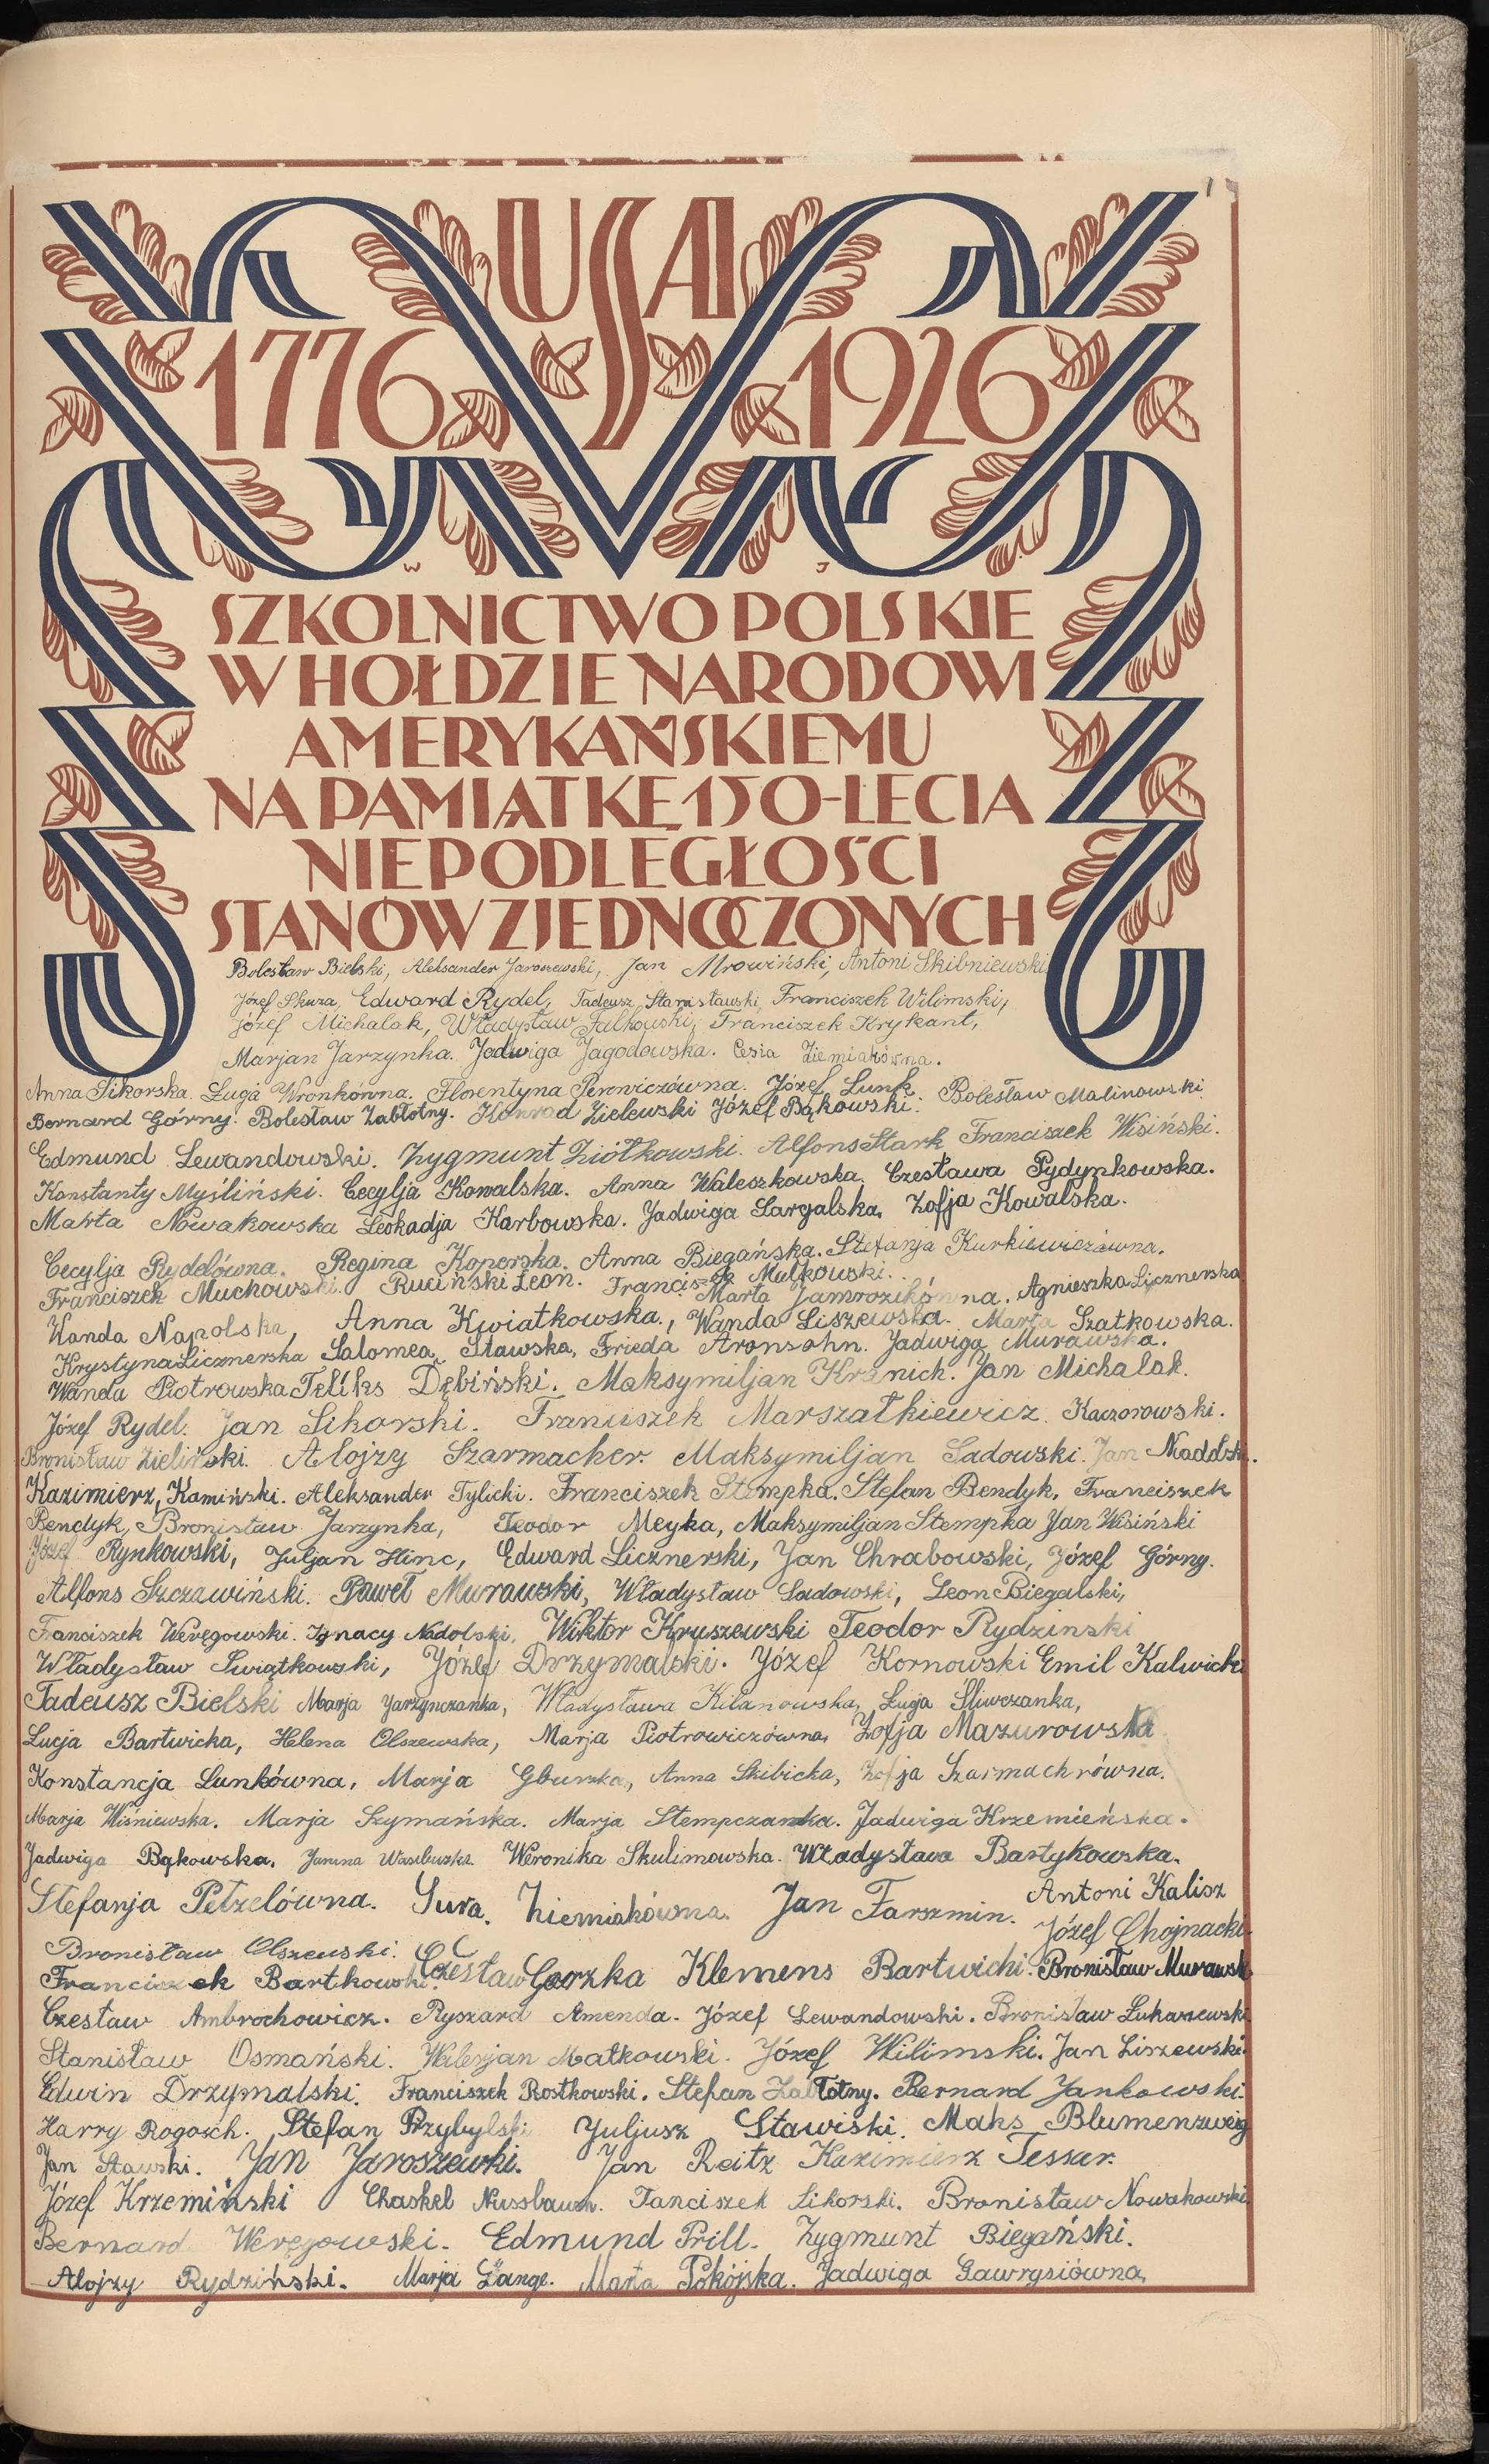 USA
1776 1926
W J
SZKOLNICTWO POLSKIE
W HOŁDZIE NARODOWI
AMERYKAŃSKIEMU
NA PAMIĄTKĘ 150-LECIA
NIEPODLEGŁOŚCI
STANÓW ZJEDNOCZONYCH
Bolesław Bielski, Aleksander Jaroszewski, Jan Mrowiński, Antoni Skibniewski
Józef Skuza, Edward Rydel, Tadeusz Stanisławski, Franciszek Wilimski,
Józef Michalak, Władysław Falkowski, Franciszek Krykant,
Marjan Jarzynka. Jadwiga Jagodowska. Cesia Ziemiakówna.
Anna Sikorska. Wronkówna. Florentyna Perowiczówna. Józef Lunk. Bolesław Malinowski
Bernard Górny. Bolesław Zabłotny. Konrad Zielewski Józef Bąkowski.
Edmund Lewandowski. Zygmunt Ziółkowski. Alfons Stark Franciszek Wisiński.
Konstanty Myśliński. Cecylja Kowalska. Anna Waleszkowska. Czesława Pydynkowska.
Marta Nowakowska Leokadja Karbowska. Jadwiga Sargalska, Zofja Kowalska.
Cecylja Rydelówna. Regina Koperska. Anna Biegańska. Stefanja Kurkiewiczówna.
Franciszek Muchowski. Ruciński Leon. Franciszek Mulkowski.
Marta Jamrozikówna. Agnieszka Licznerska
Wanda Napolska, Anna Kwiatkowska., Wanda Liszewska. Marta Szatkowska.
Krystyna Licznerska Salomea Sławska, Frieda Aronsohn. Jadwiga Murawska.
Wanda Piotrowska Feliks Dębiński. Maksymiljan Kranich. Jan Michalak.
Józef Rydel. Jan Sikorski. Franciszek Marszałkiewicz. Kaczorowski.
Bronisław Zieliński. Alojzy Szarmacher. Maksymiljan Sadowski. Jan
Kazimierz, Kamiński. Aleksander Tylicki. Franciszek Stempka. Stefan Bendyk, Franciszek
Bendyk, Bronisław Jarzynka, Teodor Meyka, Maksymiljan Stempka Jan Wisiński
Józef Rynkowski, Juljan Hinc, Edward Licznerski, Jan Chrabowski, Józef Górny.
Alfons Szczawiński. Paweł Murawski, Władysław Sadowski, Leon Biegalski,
Franciszek Weręgowski. Ignacy Nadolski. Wiktor Kruszewski Teodor Rydzinski
Władysław Świątkowski, Józef Drzymalski. Józef Kornowski Emil Kalwicki
Tadeusz Bielski Marja Jarzynczanka, Władysława Kilanowska, Łucja Śliwczanka,
Lucja Bartwicka, Helena Olszewska, Marja Piotrowiczówna, Zofja Mazurowska
Konstancja Lunkówna, Marja Gburzka, Anna Skibicka, Zofja Szarmachrówna.
Marja Wiśniewska. Marja Szymańska. Marja Stempczanka. Jadwiga Krzemieńska.
Jadwiga Bąkowska. Janina Weronika Skulimowska. Władysława Bartykowska.
Stefanja Petzelówna. Sura. Ziemiakówna. Jan Farszmin. Antoni Kalisz
Józef Chojnacki.
Bronisław Olszewski.
Franciszek Bartkowski. Czesław Gorzka Klemens Bartwicki. Bronisław Murawski
Czesław Ambrochowicz. Ryszard Amenda. Józef Lewandowski. Bronisław Łukaszewski
Stanisław Osmański. Walerjan Małkowski. Józef Wilimski. Jan Liszewski.
Edwin Drzymalski. Franciszek Rostkowski. Stefan Zabłotny. Bernard Jankowski.
Harry Rogosch. Stefan Przybylski Juljusz Stawiski. Maks Blumenzweig
Jan Sławski. Jan Jaroszewki. Jan Reitz Kazimierz Tessar.
Józef Krzemiński Chaskel Nussbaum. Fanciszek Sikorski. Bronisław Nowakowski
Bernard Weręgowski. Edmund Prill. Zygmunt Biegański.
Alojzy Rydziński. Marja Lange. Marta Pokójska. Jadwiga Gawrysiówna,